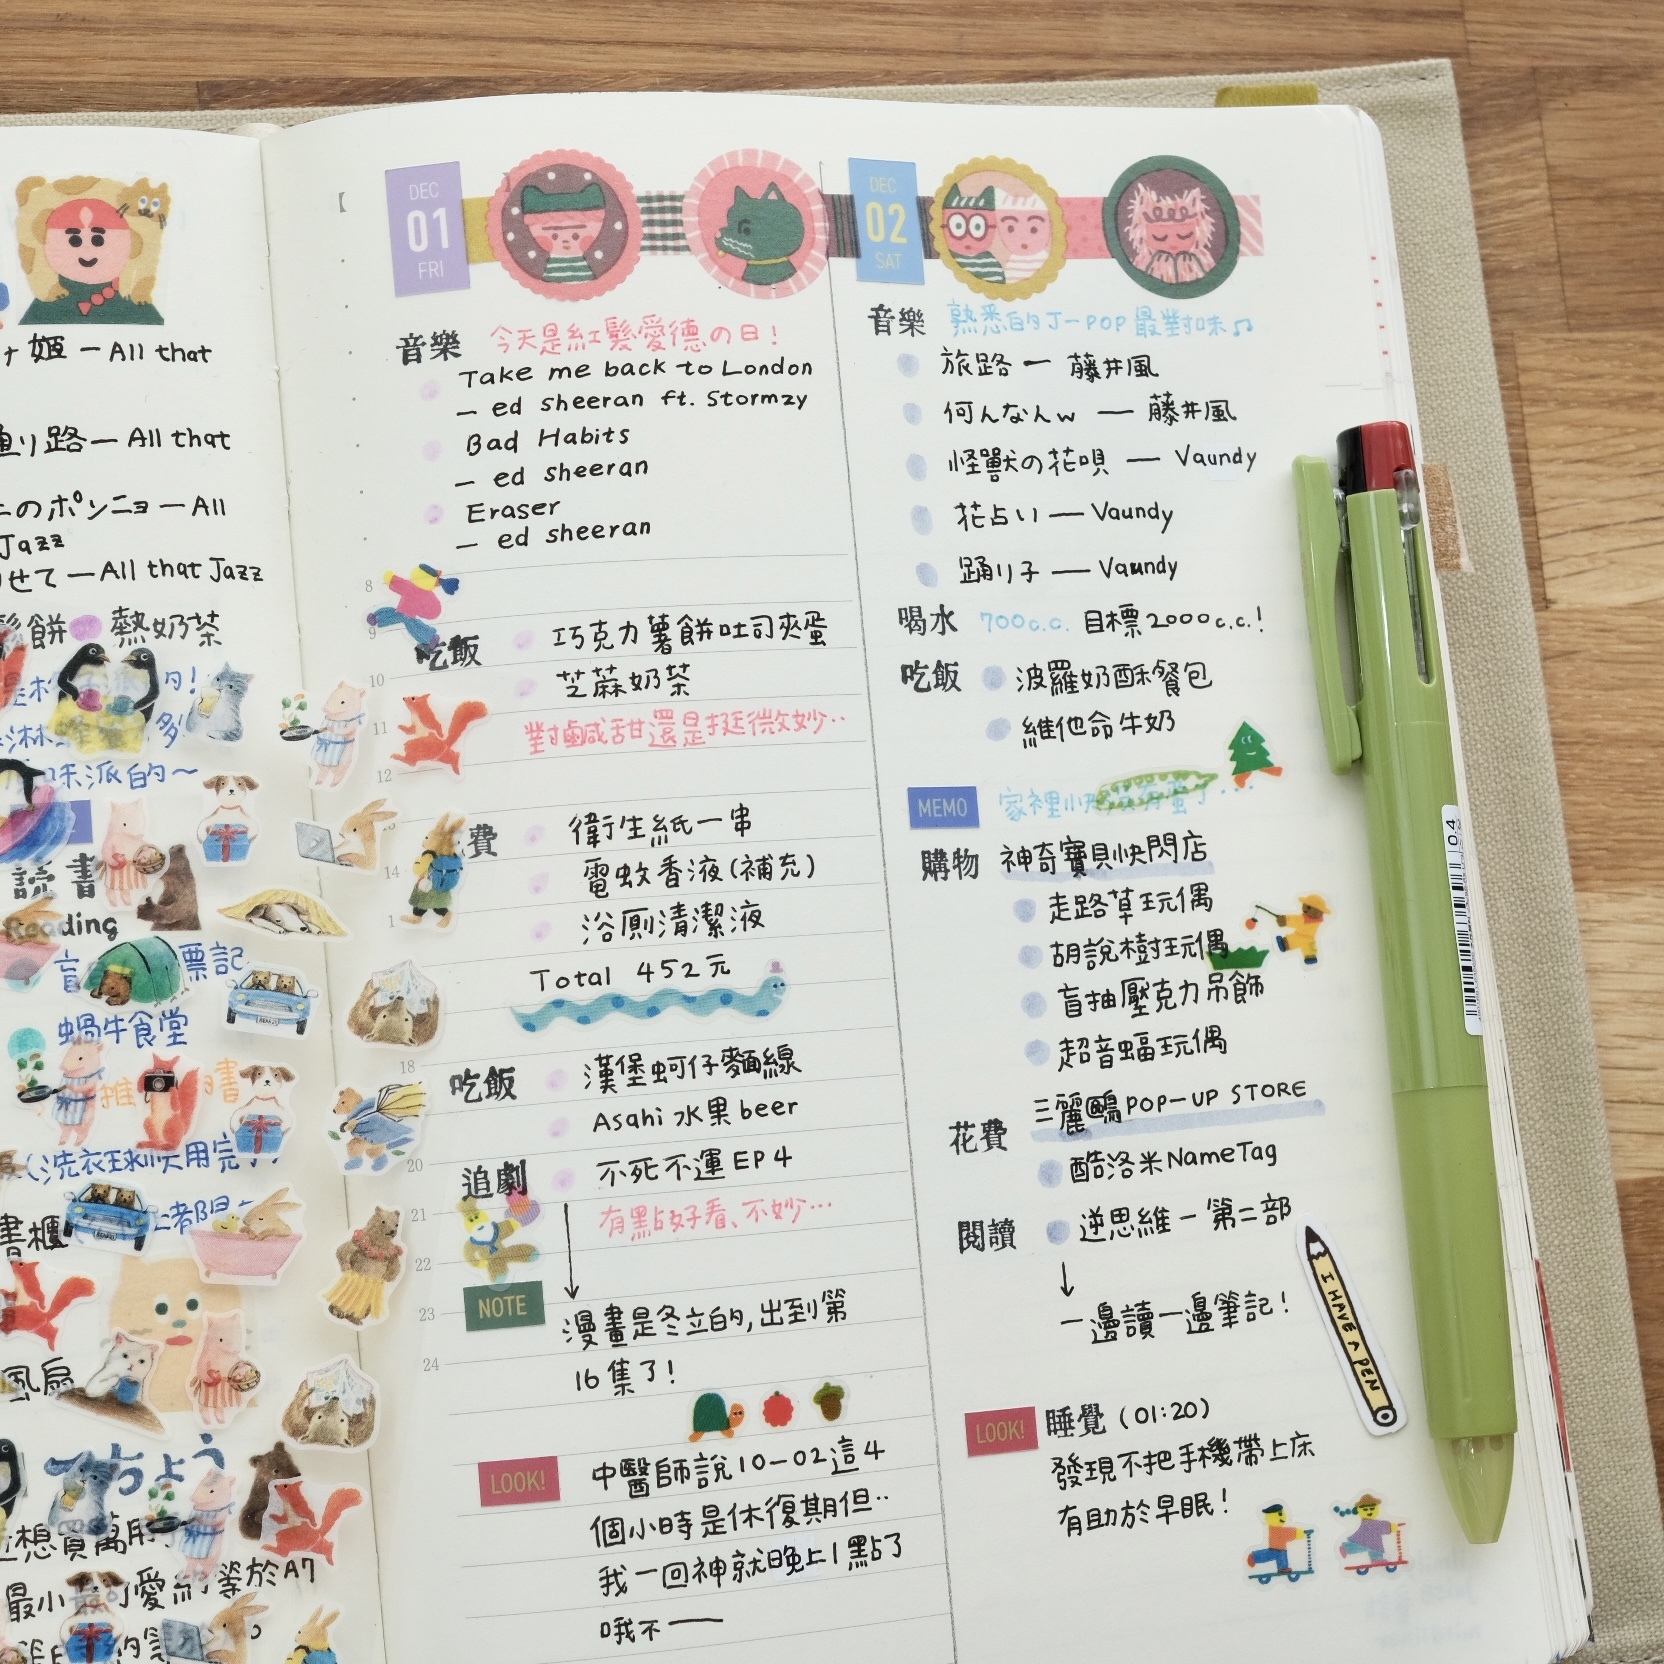 姬 — All that
り路 — All that
のポンニョ — All
Jazz
せて — All that Jazz
餅 熱奶茶
味派的~
読書
Reading
盲 票記
蝸牛食堂
推 書
(洗衣球快用完了
書櫃
風扇
ちょう
想買萬用
最小最可愛 等於A7
DEC
01
FRI
音樂 今天是紅髮愛德の日!
Take me back to London
— ed sheeran ft. Stormzy
Bad Habits
— ed sheeran
Eraser
— ed sheeran
8
9
吃飯 巧克力薯餅吐司夾蛋
10
芝蔴奶茶
11
對鹹甜還是挺微妙..
12
費 衛生紙一串
14
電蚊香液(補充)
浴廁清潔液
Total 452元
18
吃飯 漢堡蚵仔麵線
Asahi 水果 beer
20
追劇 不死不運 EP4
21
有點好看、不妙...
22
NOTE
23
漫畫是冬立的,出到第
24
16集了!
LOOK!
中醫師說10-02這4
個小時是休復期但..
我一回神就晚上1點了
哦不——
DEC
02
SAT
音樂 熟悉的J-POP最對味♫
旅路 — 藤井風
何んなんw — 藤井風
怪獸の花唄 — Vaundy
花占い — Vaundy
踊り子 — Vaundy
喝水 700c.c. 目標2000c.c.!
吃飯 波羅奶酥餐包
維他命牛奶
MEMO 家裡小
購物 神奇寶貝快閃店
走路草玩偶
胡說樹玩偶
盲抽壓克力吊飾
超音蝠玩偶
三麗鷗 POP-UP STORE
花費
酷洛米NameTag
閱讀 逆思維 - 第二部
一邊讀一邊筆記!
I HAVE A PEN
LOOK! 睡覺 (01:20)
發現不把手機帶上床
有助於早眠!
04